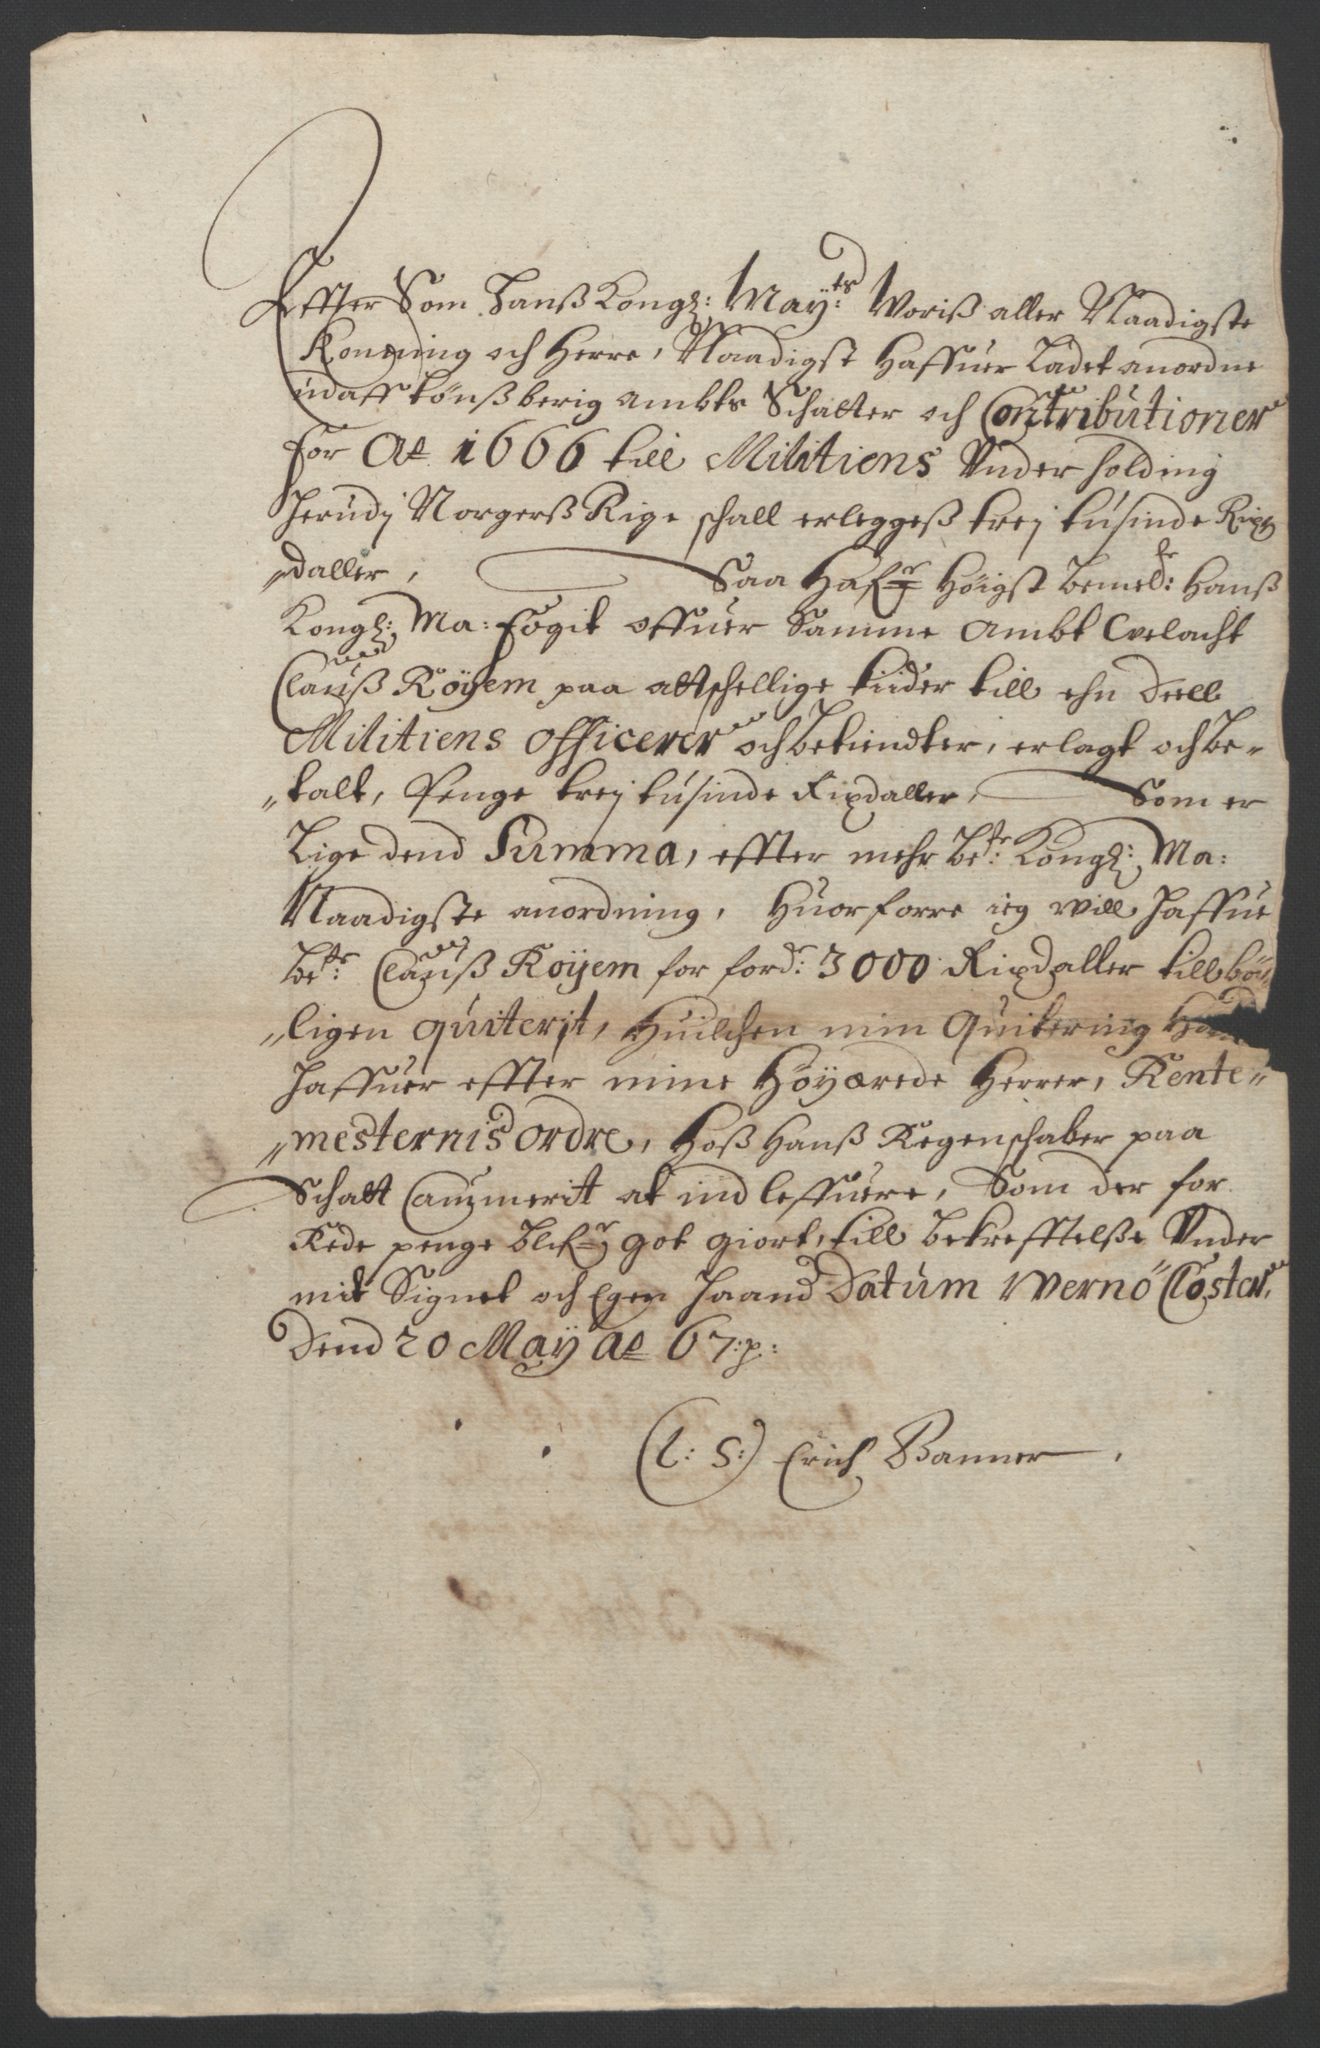 Effter Som Hanß Kongl: May:ts Woriß aller Naadigste
Konnning och Herre, Naadigst Haffuer Ladet anordne
udaff Tønßberig Ambts Schatter och Contributioner
for Ao 1666 till Militiens Underholding
herudj Norgerß Rige schall erleggeß trej tusinde Rix
„daller, Saa Hafr Høigst bemel:te Hanß
Kongl: Ma: Fogit offuer Samme Ambt Welacht
Clauß Röyem paa attschellige tiider till ehn Deell
Militiens Officerer och betiendter, erlagt och be-
„talt, Penge trej tusinde Rixdaller, Som er
Lige dend Summa, effter mehr be:te Kongl: Ma:
Naadigste anordning, Huorforre ieg will haffue
be:te Clauß Röyem for ford: 3000 Rixdaller till bör
„ligen quiterit, Huilchen min Quitering Hand
haffuer effter mine Höyærede Herrer, Rente-
„mesternis ordre, Hoß Hanß Regenschaber paa
Schatt Cammerit at indleffuere, Som der for
Rede penge blifr got giort, till bekrefftelße Under
mit Signet och Egen Haand Datum Wernö Closter,
Dend 20 Maÿ Ao 67:p:
(L: S:) Erich Banner